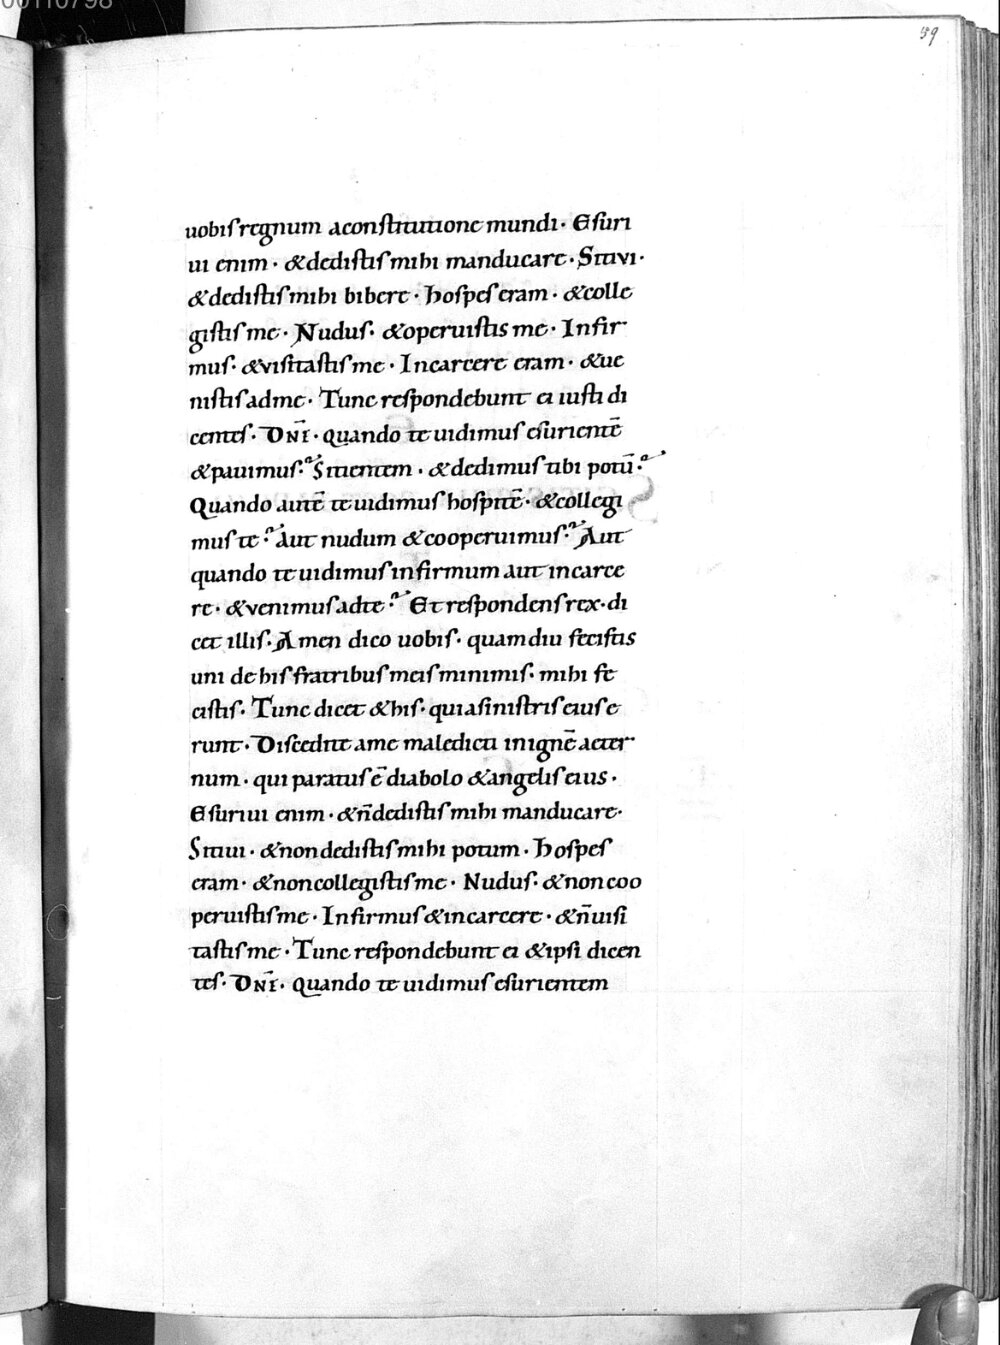 00110798
59
uobis regnum aconstitutione mundi · Esuri
ui enim · &dedistis mihi manducare · Sitivi ·
&dedistis mihi bibere · hospes eram · &colle
gistis me · Nudus · &operuistis me · Infir
mus · &visitastis me · Incarcere eram · &ue
nistis adme · Tunc respondebunt ei iusti di
centes · DN̄E · quando te uidimus esurientē
&pauimus? Sitientem · &dedimus tibi potū?
Quando autē te uidimus hospitē · &collegi
mus te? Aut nudum &cooperuimus? Aut
quando te uidimus infirmum aut incarce
re · &venimus adte? Et respondens rex · di
cet illis · Amen dico uobis · quamdiu fecistis
uni de his fratribus meis minimis · mihi fe
cistis · Tunc dicet &his · qui asinistris eius e
runt · Discedite ame maledicti inignē aeter
num · qui paratus ē diabolo &angelis eius ·
Esuriui enim · &n̄ dedistis mihi manducare ·
Sitiui · &non dedistis mihi potum · hospes
eram · &non collegistis me · Nudus · &non coo
peruistis me · Infirmus &incarcere · &n̄ uisi
tastis me · Tunc respondebunt ei &ipsi dicen
tes · DN̄E · quando te uidimus esurientem